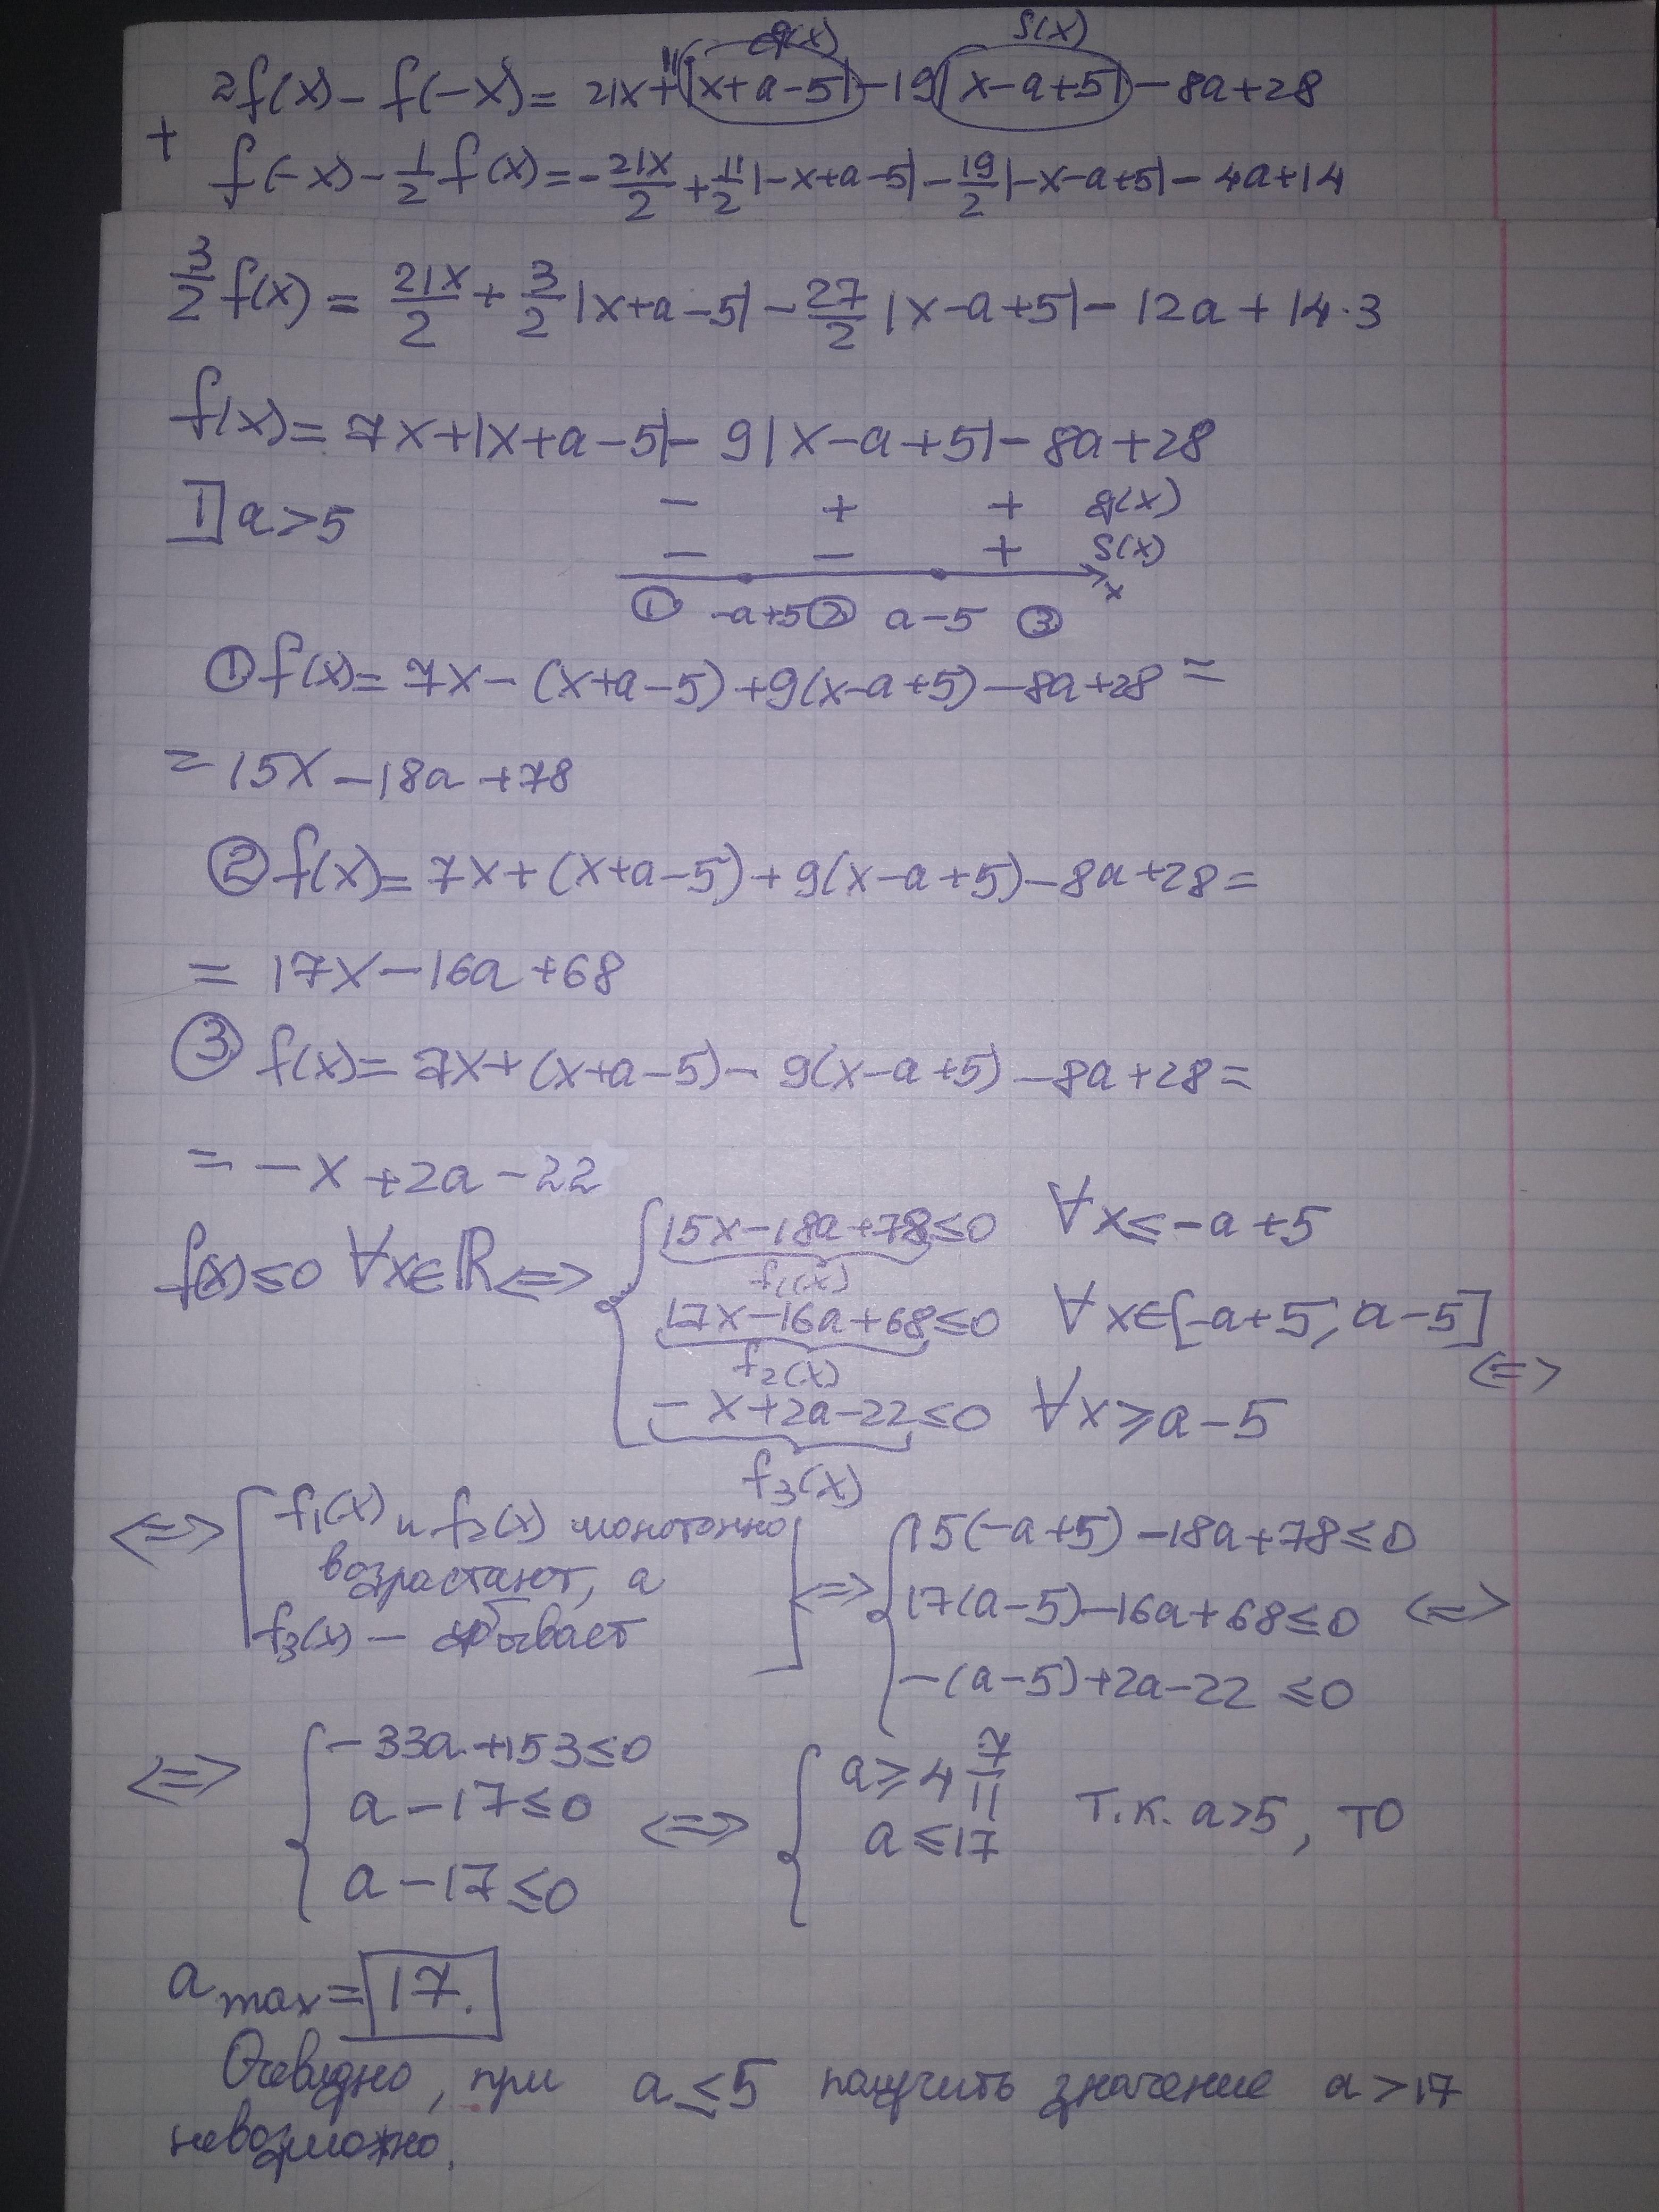 g(x) S(x)
2f(x) - f(-x) = 21x + 11|x+a-5| - 19|x-a+5| - 8a+28
+
f(-x) - 1/2 f(x) = -21x/2 + 11/2 |-x+a-5| - 19/2 |-x-a+5| - 4a+14
3/2 f(x) = 21x/2 + 3/2 |x+a-5| - 27/2 |x-a+5| - 12a + 14·3
f(x) = 7x+|x+a-5| - 9|x-a+5| - 8a+28
1 a>5
- + + g(x)
- - + S(x)
x
① -a+5 ② a-5 ③
① f(x) = 7x - (x+a-5) + 9(x-a+5) - 8a+28 =
= 15x - 18a + 78
② f(x) = 7x + (x+a-5) + 9(x-a+5) - 8a+28 =
= 17x - 16a + 68
③ f(x) = 7x + (x+a-5) - 9(x-a+5) - 8a+28 =
= -x + 2a - 22
f(x) ≤ 0 ∀x∈ℝ <=> { 15x-18a+78 ≤ 0 ∀x ≤ -a+5
f₁(x)
17x-16a+68 ≤ 0 ∀x∈[-a+5; a-5]
f₂(x)
-x+2a-22 ≤ 0 ∀x ≥ a-5 <=>
f₃(x)
<=> [ f₁(x) и f₂(x) монотонно возрастают, а f₃(x) – убывает ] <=>
{ 15(-a+5) - 18a+78 ≤ 0
17(a-5) - 16a+68 ≤ 0 <=>
-(a-5)+2a-22 ≤ 0
<=> { -33a+153 ≤ 0
a-17 ≤ 0
a-17 ≤ 0
<=> { a ≥ 4 7/11
a ≤ 17
т.к. a>5, то
a max = 17.
Очевидно, при a ≤ 5 получить значение a > 17
невозможно.